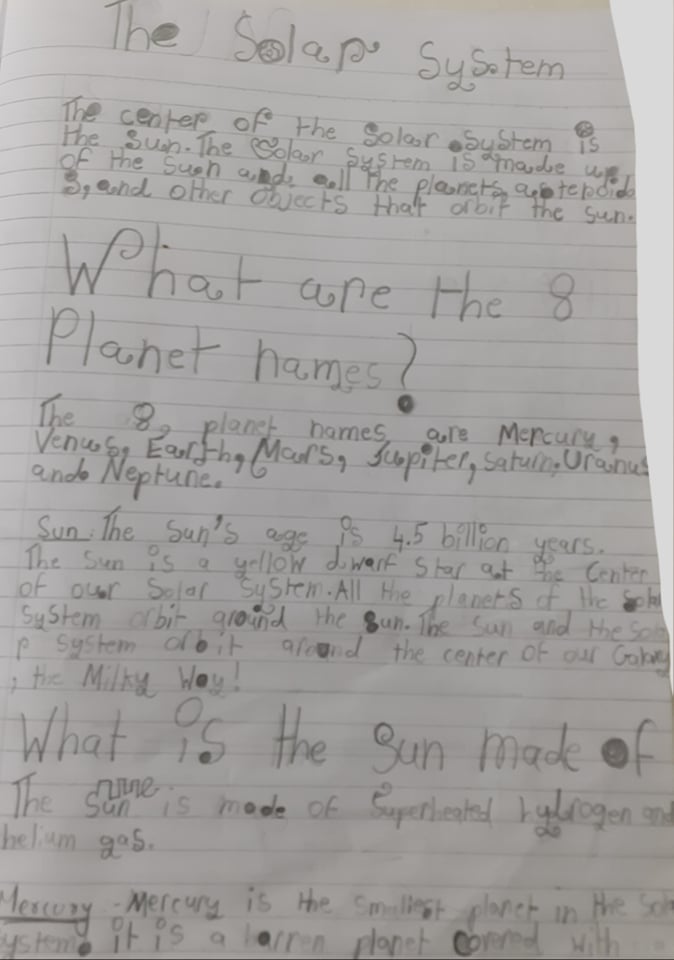 The Solar System
The center of the Solar System is
the Sun. The Solar System is made up
of the sun and all the planets, asteroid
s, and other objects that orbit the sun.
What are the 8
Planet names?
The 8 planet names are Mercury,
Venus, Earth, Mars, Jupiter, Saturn, Uranus
and Neptune.
Sun: The Sun's age is 4.5 billion years.
The Sun is a yellow dwarf star at the Center
of our Solar System. All the planets of the Solar
System orbit around the Sun. The Sun and the Sola
r system orbit around the center of our Galaxy
, the Milky Way!
What is the Sun made of
The Sun is made of Superheated hydrogen and
helium gas.
Mercury - Mercury is the smallest planet in the Sola
System. it is a barren planet covered with